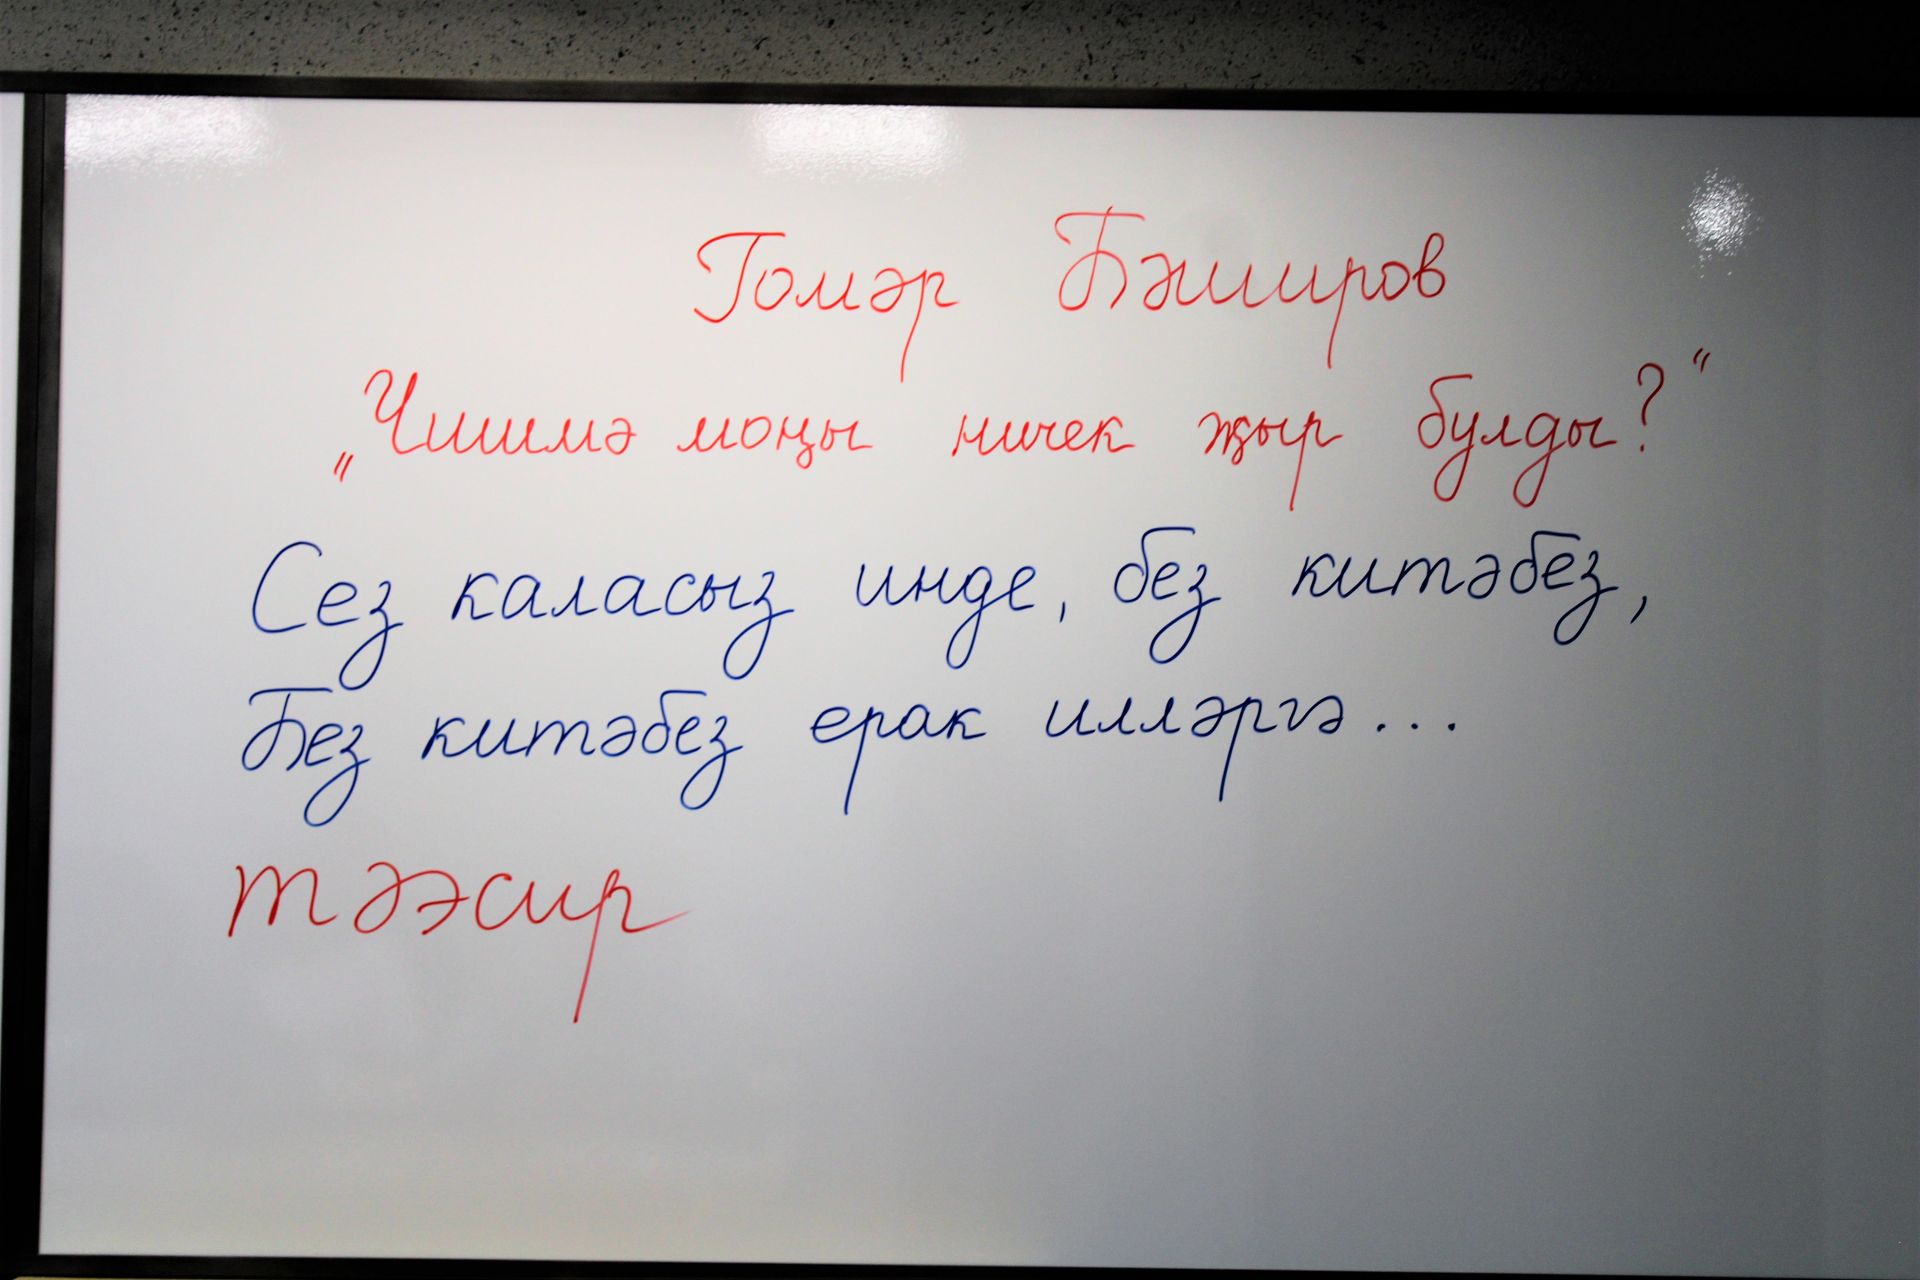 Гомәр Бәширов
„Чишмә моңы ничек җыр булды?“
Сез каласыз инде, без китәбез,
Без китәбез ерак илләргә...
тәэсир